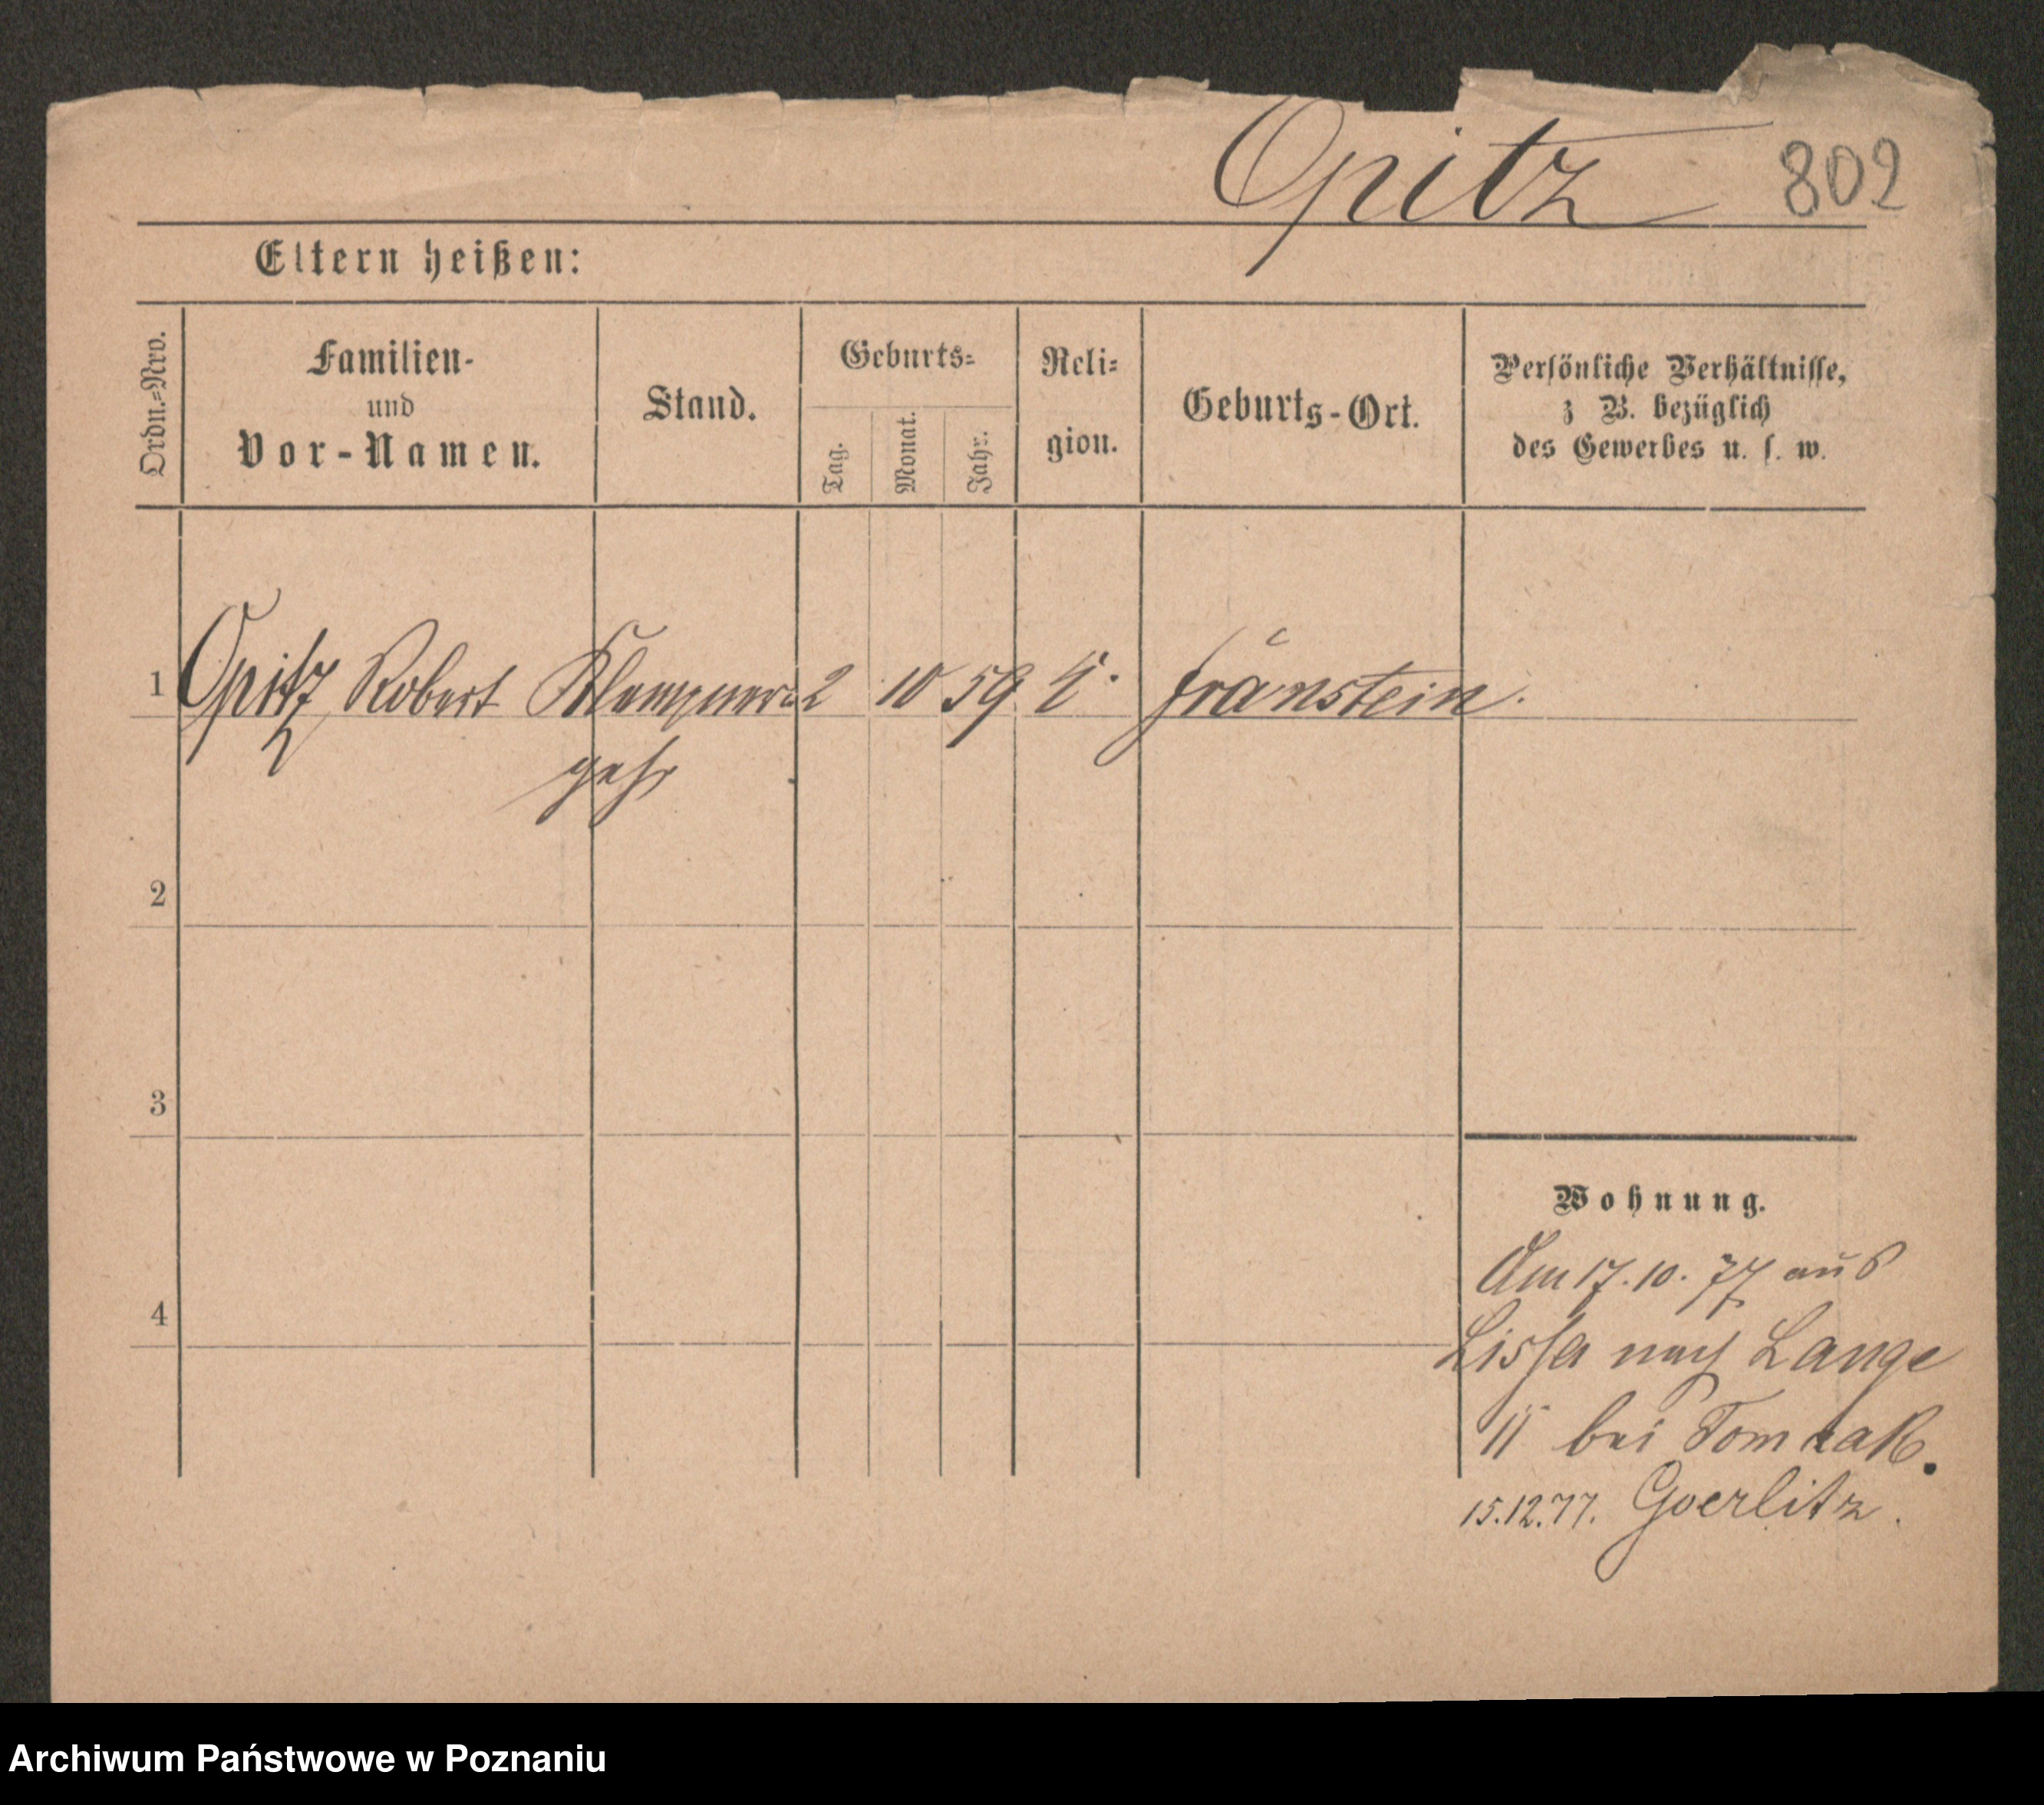 Opitz 802
Eltern heißen:
Ordn.-Nro.
Familien- und Vor-Namen.
Stand.
Geburts-
Tag. Monat. Jahr.
Reli-gion.
Geburts-Ort.
Persönliche Verhältnisse,
z B. bezüglich
des Gewerbes u. s. w.
1 Opitz Robert Klempner 2 10 59
2
3
4
Wohnung.
Am 17. 10. 77 aus
Lissa nach Lange
11 bei
15.12.77. Goerlitz.
Archiwum Państwowe w Poznaniu